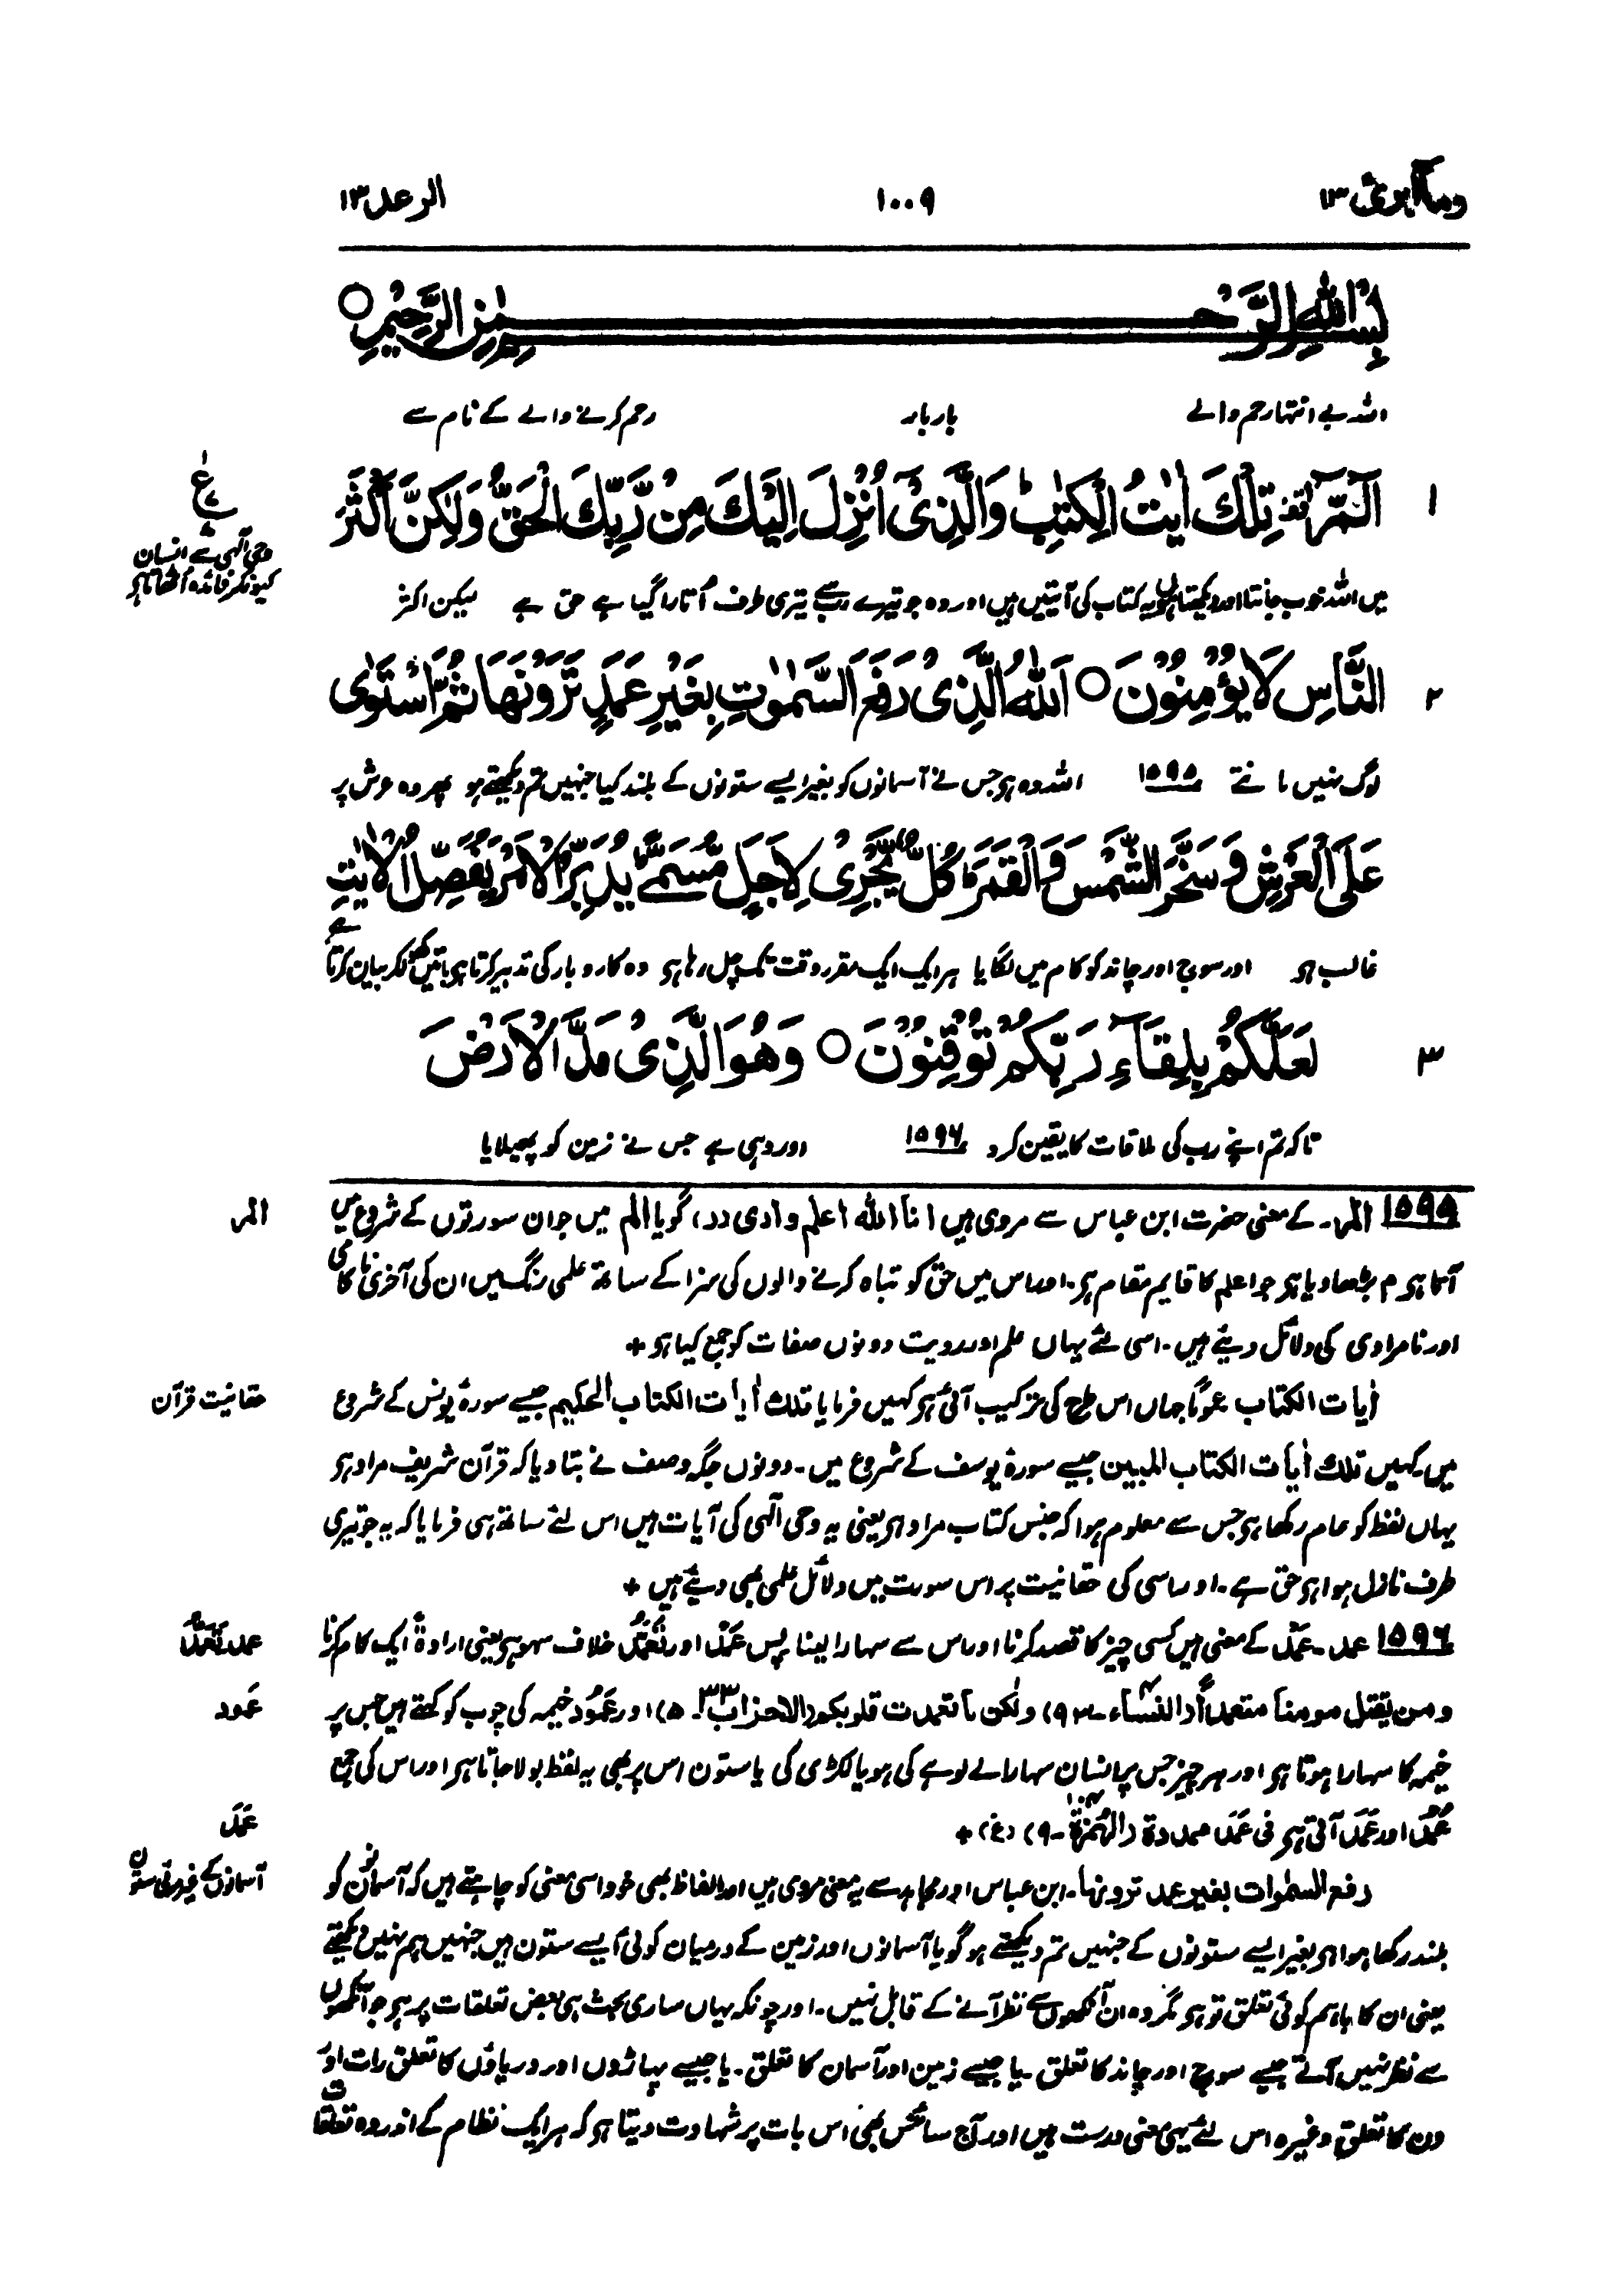 ومآ ابرئ ١٣
١٠٠٩
الرعد ١٣
بِسْمِ اللّٰهِ الرَّحْمٰنِ الرَّحِيْمِ ○
اللہ بے انتہا رحم والے بار بار رحم کرنے والے کے نام سے
١ الٓمّٓرٰ قف تِلْكَ اٰيٰتُ الْكِتٰبِ ؕ وَالَّذِيْٓ اُنْزِلَ اِلَيْكَ مِنْ رَّبِّكَ الْحَقُّ وَلٰكِنَّ اَكْثَرَ
ع
وحی الٰہی سے انسان
کیونکر فائدہ اٹھاتا ہو
میں اللہ خوب جانتا اور دیکھتا ہوں یہ کتاب کی آیتیں ہیں اور وہ جو تیرے رب سے تیری طرف اُتارا گیا ہے حق ہے لیکن اکثر
٢ النَّاسِ لَا يُؤْمِنُوْنَ ○ اَللّٰهُ الَّذِيْ رَفَعَ السَّمٰوٰتِ بِغَيْرِ عَمَدٍ تَرَوْنَهَا ثُمَّ اسْتَوٰى
لوگ نہیں مانتے ١٥٩٥ اللہ وہ ہو جس نے آسمانوں کو بغیر ایسے ستونوں کے بلند کیا جنہیں تم دیکھتے ہو پھر وہ عرش پر
عَلَى الْعَرْشِ وَ سَخَّرَ الشَّمْسَ وَ الْقَمَرَ ؕ كُلٌّ يَّجْرِيْ لِاَجَلٍ مُّسَمًّى ؕ يُدَبِّرُ الْاَمْرَ يُفَصِّلُ الْاٰيٰتِ
غالب ہو اور سورج اور چاند کو کام میں لگایا ہر ایک ایک مقرر وقت تک چل رہا ہو وہ کاروبار کی تدبیر کرتا ہو باتیں کھول کر بیان کرتا ہے
٣ لَعَلَّكُمْ بِلِقَآءِ رَبِّكُمْ تُوْقِنُوْنَ ○ وَهُوَ الَّذِيْ مَدَّ الْاَرْضَ
تاکہ تم اپنے رب کی ملاقات کا یقین کرو ١٥٩٦ اور وہی ہے جس نے زمین کو پھیلایا
١٥٩٥ المر۔ کے معنی حضرت ابن عباس سے مروی ہیں انا اللہ اعلم و اری (د)، گویا الم میں جو ان سورتوں کے شروع میں
المر
آتا ہو م بڑھا دیا ہو جو اعلم کا قایم مقام ہو۔ اور اس میں حق کو تباہ کرنے والوں کی سزا کے ساتھ علمی رنگ میں ان کی آخری ناکامی
اور نامرادی کی دلائل دیئے ہیں۔ اسی لئے یہاں علم اور رویت دونوں صفات کو جمع کیا ہو +
اٰیات الکتاب عموماً جہاں اس طرح کی ترکیب آئی ہو کہیں فرمایا تلك اٰیات الکتاب الحکیم جیسے سورۂ یونس کے شروع
حقانیت قرآن
میں کہیں تلك اٰیات الکتاب المبین جیسے سورۂ یوسف کے شروع میں۔ دونوں جگہ وصف نے بتا دیا کہ قرآن شریف مراد ہو
یہاں لفظ کو عام رکھا ہو جس سے معلوم ہوا کہ جنس کتاب مراد ہو یعنی یہ وحی الٰہی کی آیات ہیں اس لئے ساتھ ہی فرمایا کہ یہ جو تیری
طرف نازل ہوا ہو حق ہے۔ اور اسی کی حقانیت پر اس سورت میں دلائل علمی بھی دیئے ہیں +
١٥٩٦ عمد۔ عَمْد کے معنی ہیں کسی چیز کا قصد کرنا اور اس سے سہارا لینا پس عَمْد اور تَعَمُّد خلاف سہو ہو یعنی ارادۃً ایک کام کرنا
عمد تَعَمُّد
ومن یقتل مومنا متعمداً (النساء ٤۔ ٩٣) ولٰکن ما تعمدت قلوبکم (الاحزاب ٣٣۔ ٥) اور عَمُود خیمہ کی چوب کو کہتے ہیں جس پر
عَمود
خیمہ کا سہارا ہوتا ہو اور ہر چیز جس پر انسان سہارا لے لوہے کی ہو یا لکڑی کی یا ستون اس پر بھی یہ لفظ بولا جاتا ہو اور اس کی جمع
عُمُد اور عَمَد آتی ہو فی عَمَد ممددۃ (الھُمَزَۃ ١٠٤۔ ٩) (غ) +
عَمَد
رفع السمٰوات بغیر عمد ترونہا۔ ابن عباس اور مجاہد سے یہ معنی مروی ہیں اور الفاظ بھی خود اسی معنی کو چاہتے ہیں کہ آسمانوں کو
آسمانوں کے غیر مرئی ستون
بلند رکھا ہوا ہو بغیر ایسے ستونوں کے جنہیں تم دیکھتے ہو گویا آسمانوں اور زمین کے درمیان کوئی ایسے ستون ہیں جنہیں ہم نہیں دیکھتے
یعنی ان کا باہم کوئی تعلق تو ہو مگر وہ ان آنکھوں سے نظر آنے کے قابل نہیں۔ اور چونکہ یہاں ساری بحث ہی بعض تعلقات پر ہو جو آنکھوں
سے نظر نہیں آتے جیسے سورج اور چاند کا تعلق۔ یا جیسے زمین اور آسمان کا تعلق۔ یا جیسے پہاڑوں اور دریاؤں کا تعلق رات اور
دن کا تعلق وغیرہ اس لئے یہی معنی درست ہیں اور آج سائنس بھی اس بات پر شہادت دیتا ہو کہ ہر ایک نظام کے اندر وہ تعلقات